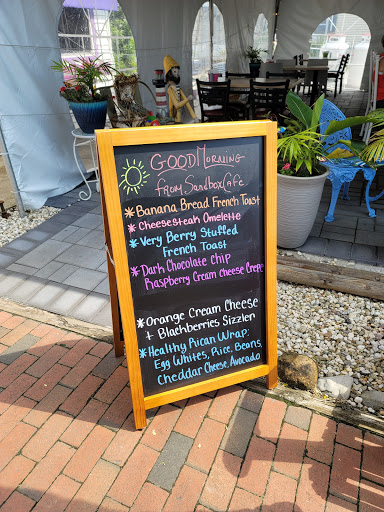 GOOD Morning
From Sandbox Cafe
* Banana Bread French Toast
* Cheesesteak Omelette
* Very Berry Stuffed
French Toast
* Dark Chocolate Chip
Raspberry Cream Cheese Crepe
* Orange Cream Cheese
+ Blackberries Sizzler
* Healthy Rican Wrap:
Egg Whites, Rice, Beans,
Cheddar Cheese, Avocado